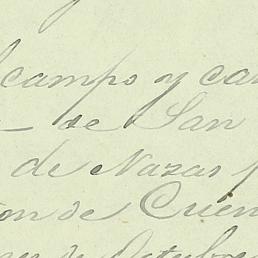 campo y
de San
de Nazas
on de Cuen
de Octubre